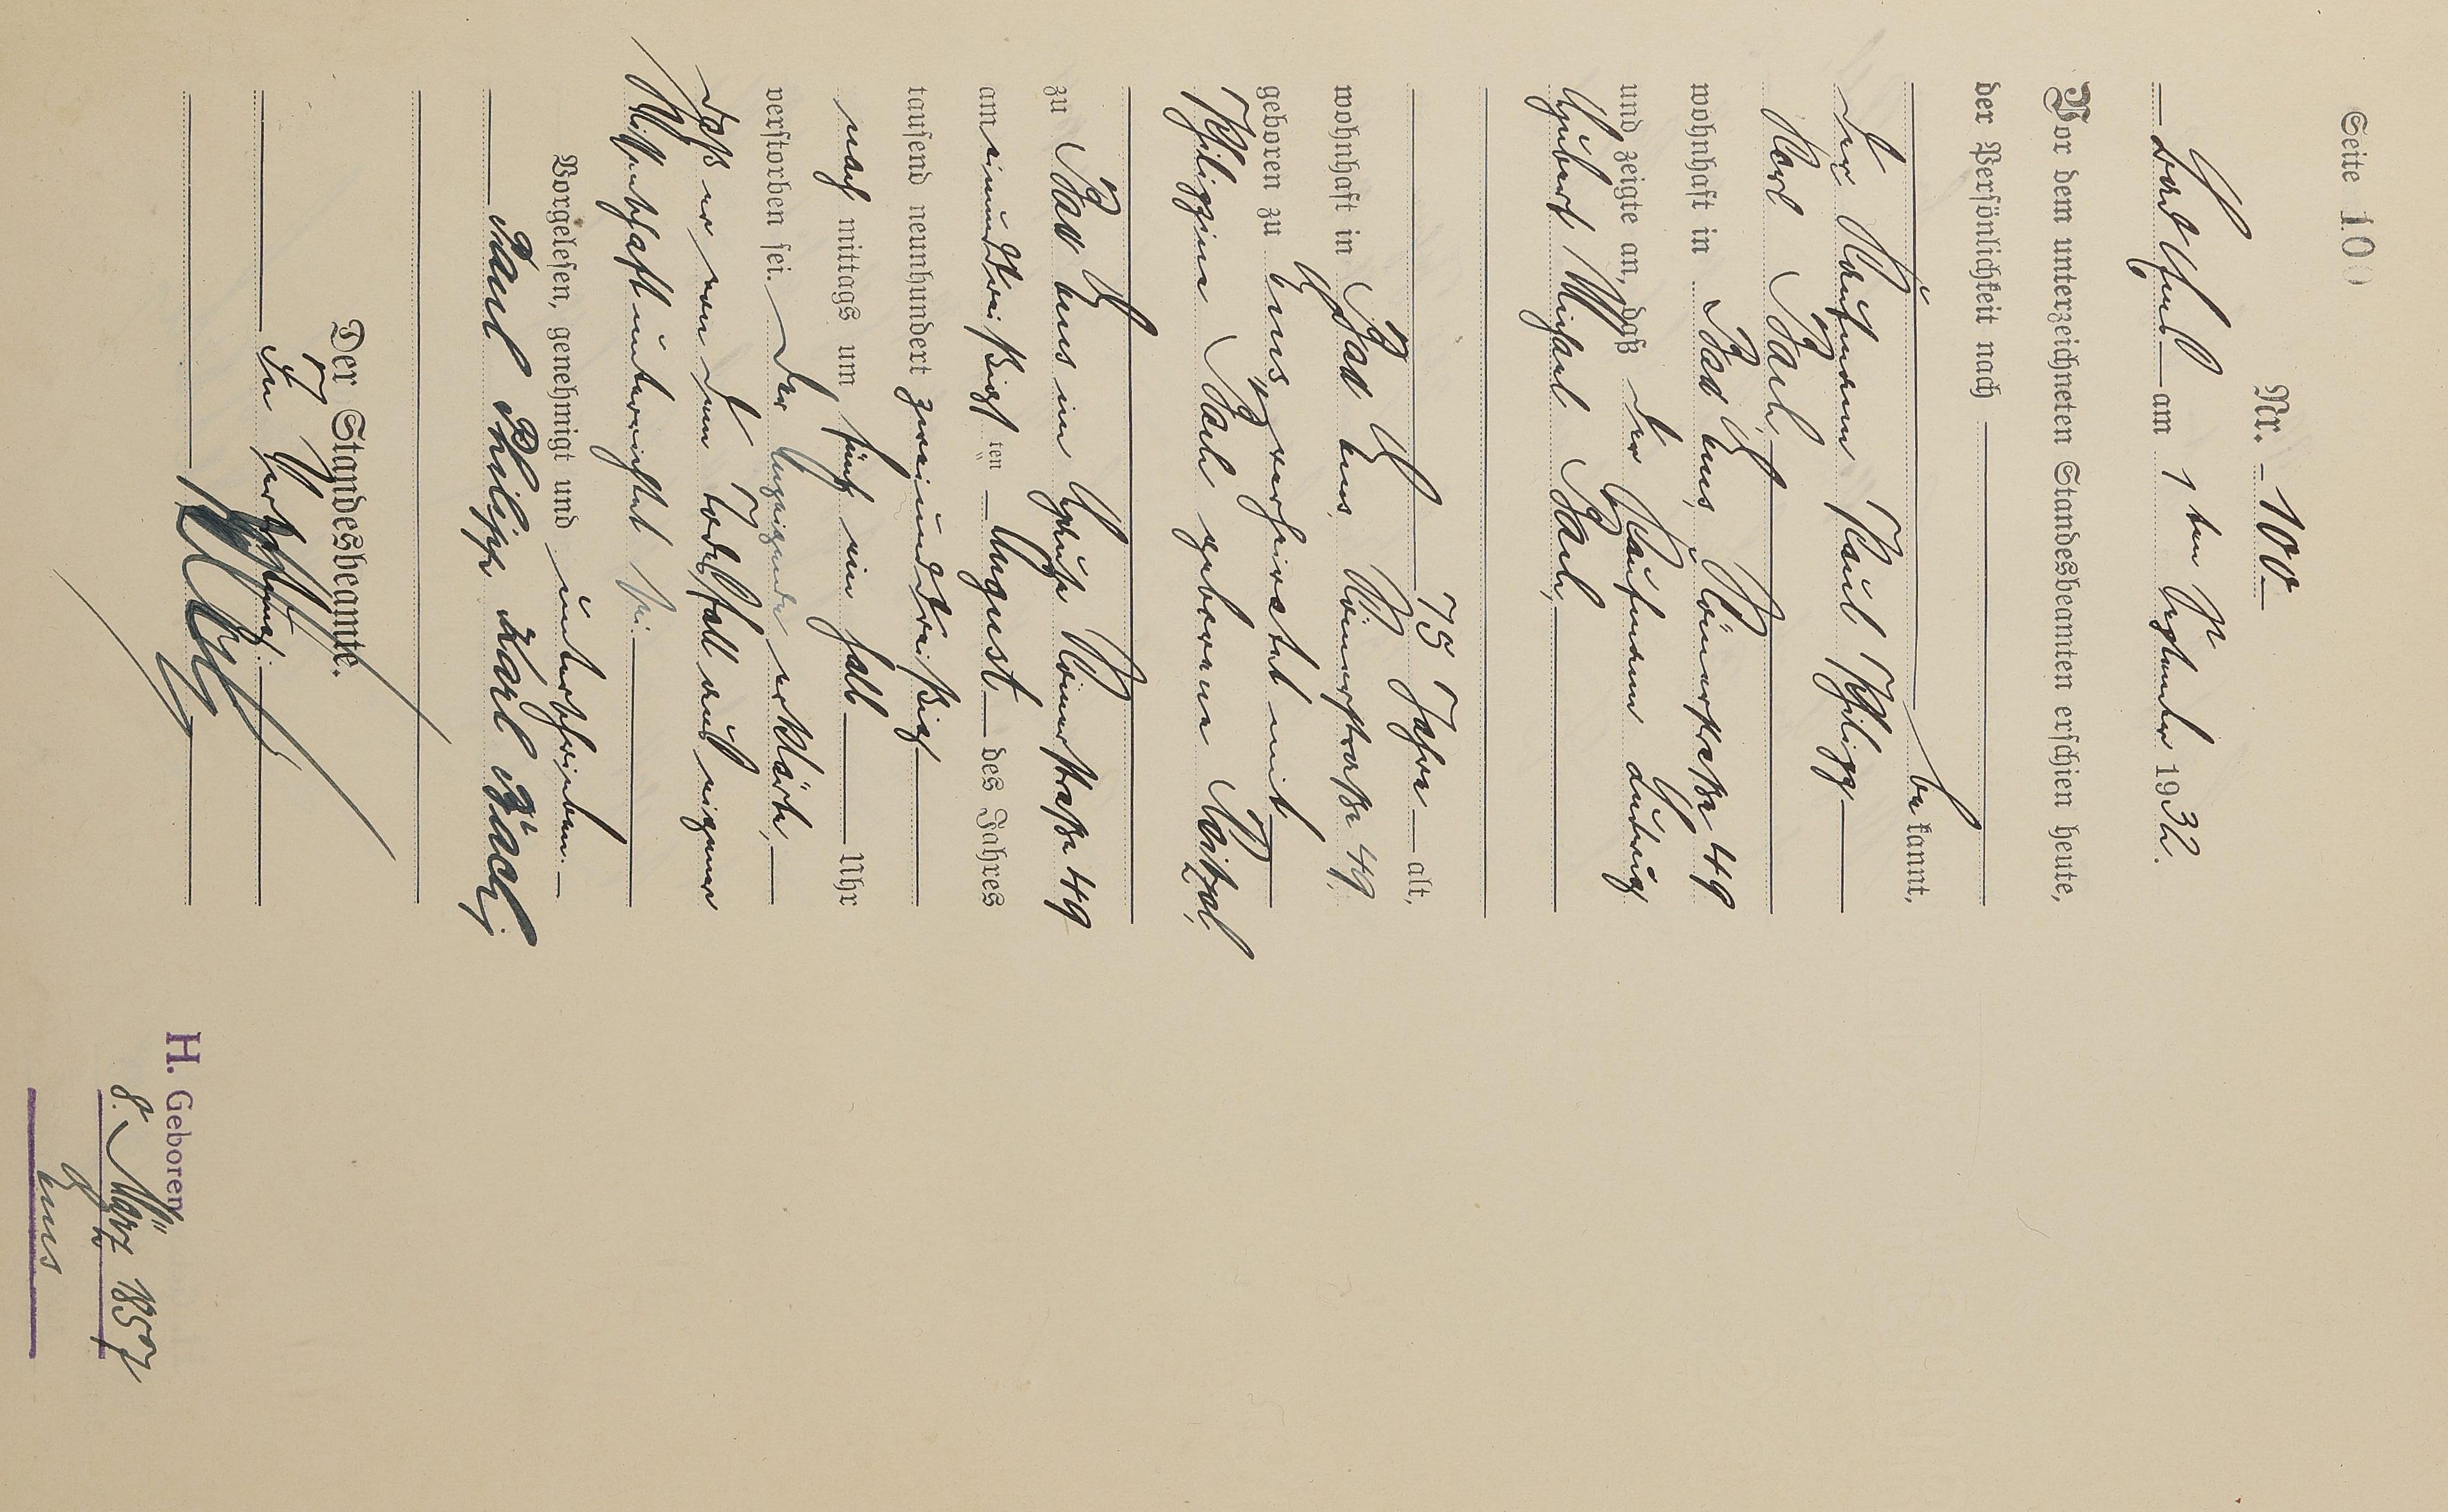 Seite 100
Nr. 100
Bad Ems am 1ten September 1932.
Vor dem unterzeichneten Standesbeamten erschien heute,
der Persönlichkeit nach
bekannt,
der Kaufmann Paul Philipp
Karl Bach,
wohnhaft in Bad Ems, Römerstraße 49
und zeigte an, daß der Kaufmann Ludwig
Michael Bach,
75 Jahre alt,
wohnhaft in Bad Ems, Römerstraße 49,
geboren zu Ems, verheiratet mit
Philippine Bach geborene
zu Bad Ems im Hause Römerstraße 49
am einunddreißigsten August des Jahres
tausend neunhundert zweiunddreißig
nach mittags um fünf ein halb Uhr
verstorben sei. Der Anzeigende erklärte,
daß er von dem Todesfall aus eigener
Wissenschaft unterrichtet sei.
Vorgelesen, genehmigt und unterschrieben.
Paul Philipp Karl Bach
Der Standesbeamte.
In Vertretung:
H. Geboren
8. März 1857
Ems